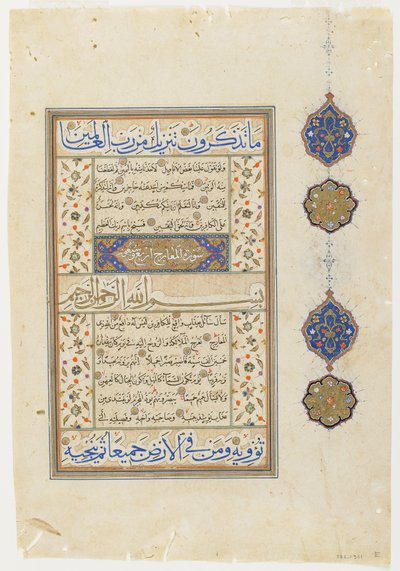 ما تذكرون تنزيل من رب العالمين
ولو تقول علينا بعض الاقاويل لاخذنا منه باليمين ثم لقطعنا
منه الوتين فما منكم من احد عنه حاجزين وانه لتذكرة
للمتقين وانا لنعلم ان منكم مكذبين وانه لحسرة
على الكافرين وانه لحق اليقين فسبح باسم ربك العظيم
سورة المعارج اربع
بسم الله الرحمن الرحيم
سأل سائل بعذاب واقع للكافرين ليس له دافع من الله ذي
المعارج تعرج الملائكة والروح اليه في يوم كان مقداره
خمسين الف سنة فاصبر صبرا جميلا انهم يرونه بعيدا
ونراه قريبا يوم تكون السماء كالمهل وتكون الجبال كالعهن
ولا يسأل حميم حميما يبصرونهم يود المجرم لو يفتدي من
عذاب يومئذ ببنيه وصاحبته واخيه وفصيلته التي
تؤويه ومن في الارض جميعا ثم ينجيه